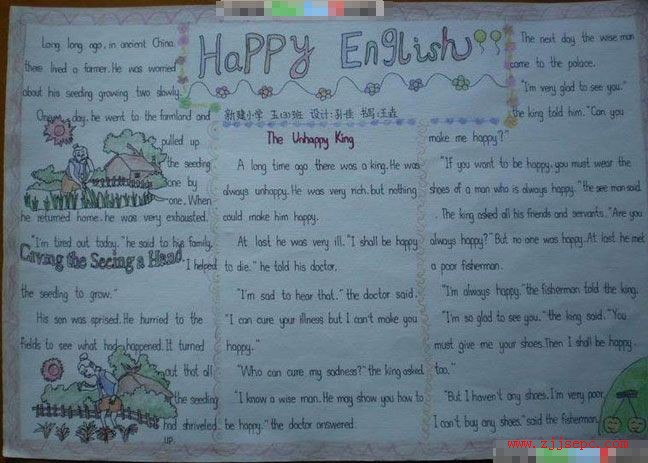 HaPPY EnGlish
新建小学 五(3)班 设计:孙佳 书写:王森
Long, long ago, in ancient China,
there lived a farmer. He was worried
about his seeding growing two slowly.
One day, he went to the farmland and
pulled up
the seeding
one by
one. When
he returned home, he was very exhausted.
"I'm tired out today." he said to his family.
Giving the Seeing a Hand
I helped
the seeding to grow."
His son was sprised. He hurried to the
fields to see what had happened. It turned
out that all
the seeding
had shriveled
up.
The Unhappy King
A long time ago there was a king. He was
always unhappy. He was very rich, but nothing
could make him happy.
At last he was very ill. "I shall be happy
to die." he told his doctor.
"I'm sad to hear that," the doctor said.
"I can cure your illness but I can't make you
happy."
"Who can cure my sadness?" the king asked.
"I know a wise man. He may show you how to
be happy." the doctor answered.
The next day the wise man
came to the palace.
"I'm very glad to see you."
the king told him. "Can you
make me happy?"
"If you want to be happy, you must wear the
shoes of a man who is always happy." the see man said
. The king asked all his friends and servants. "Are you
always happy?" But no one was happy. At last he met
a poor fisherman.
"I'm always happy," the fisherman told the king.
"I'm so glad to see you," the king said. "You
must give me your shoes. Then I shall be happy,
too."
"But I haven't any shoes. I'm very poor,
I can't buy any shoes." said the fisherman.
www.zjjsepc.com